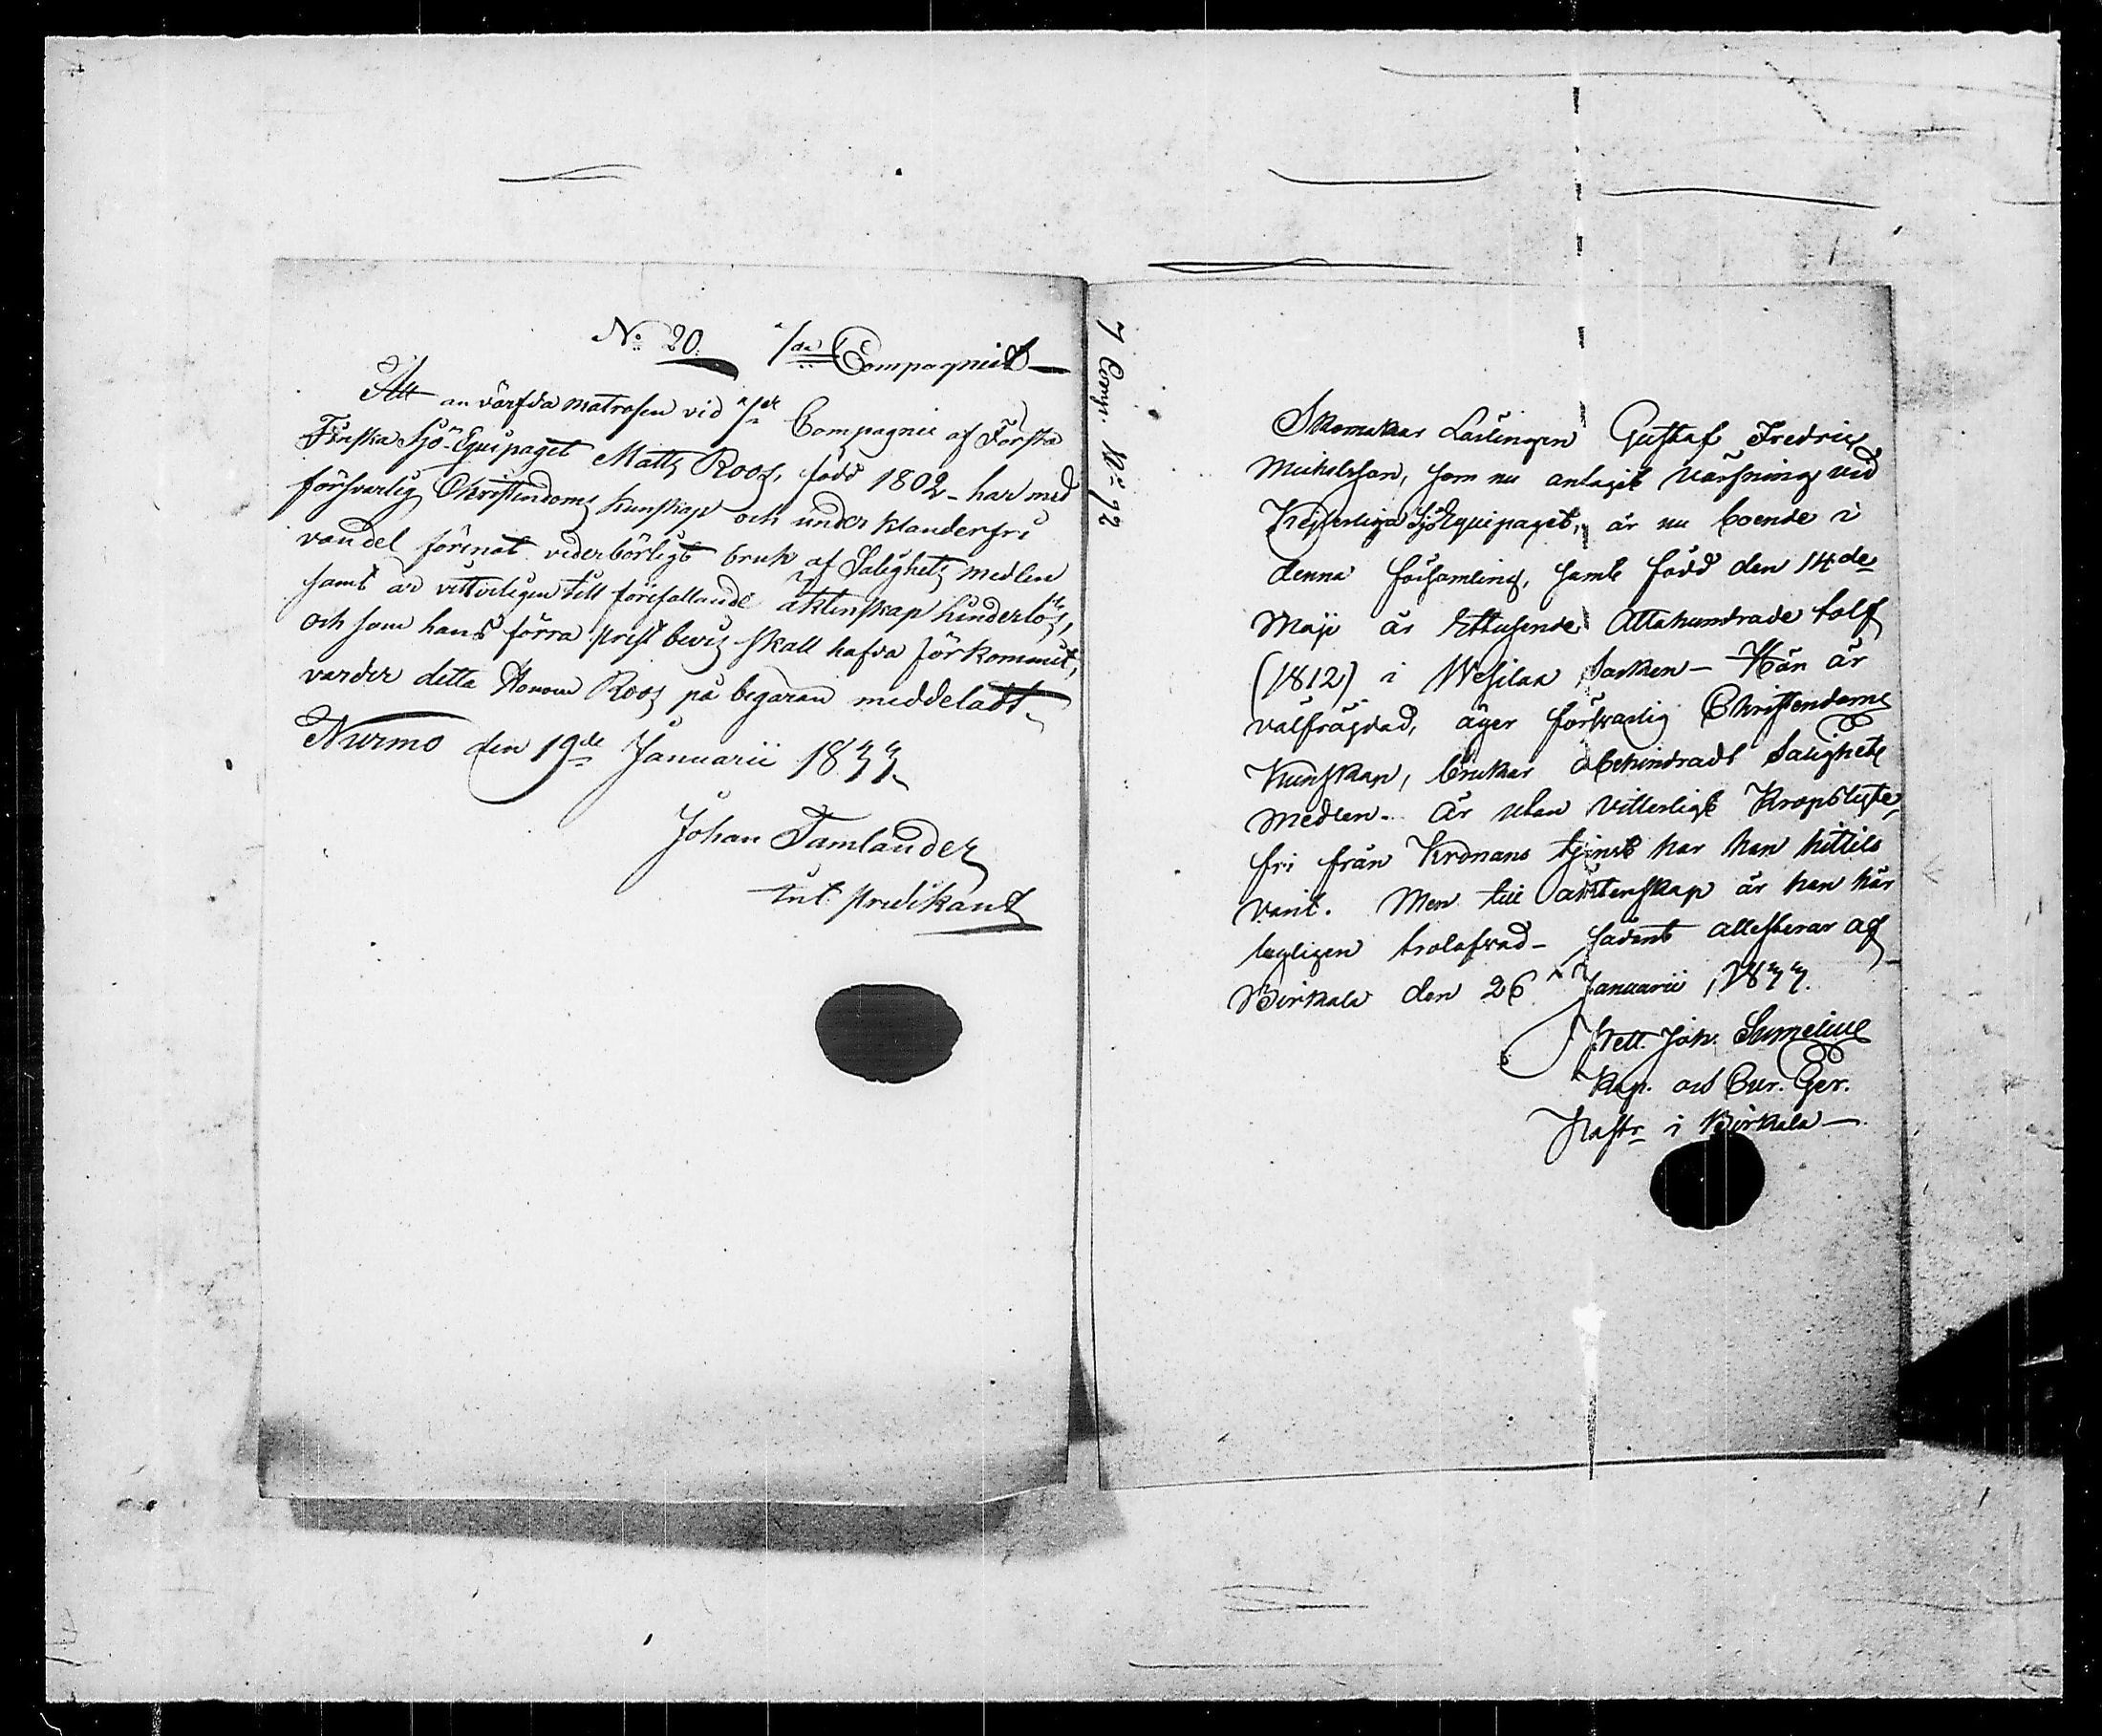 No 20. 1sta Compagniet
Att an värfda matrosen vid 1sta Compagnie af Första
Finska Sjö-Equipaget Matts Roos, född 1802 - har med
försvarlig Christendoms kunskap och under klanderfri
vandel förenat vederbörligt bruk af Salighets medlen
samt är vitterligen till förefallande äktenskap hinderlös,
och som hans förra prest bevis skall hafva förkommit,
varder detta Honom Roos på begäran meddeladt
Nurmo den 19de Januarii 1833.
Johan Tamlander
Int. predikant
7 Comp. No 72
Skomakar Lärlingen Gustaf Fredric
Michelsson, som nu antagit värfning vid
Kejserliga Sjö Equipaget, är nu boende i
denna församling, samt född den 14de
Maji år Ettusende Åttahundrade tolf
(1812) i Wesilax Socken - Han är
välfräjdad, äger försvarlig Christendoms
Kunskap, brukar obehindradt Salighets
medlen. Är utan vitterligt Kropslyte,
fri från Kronans tjenst har han hittils
varit. Men till äktenskap är han här
lagligen trolofvad - sådant attesterar af
Birkala den 26 Januarii 1833.
Joh. Sumelius
Kap. och Cur. Ger.
Past. i Birkala